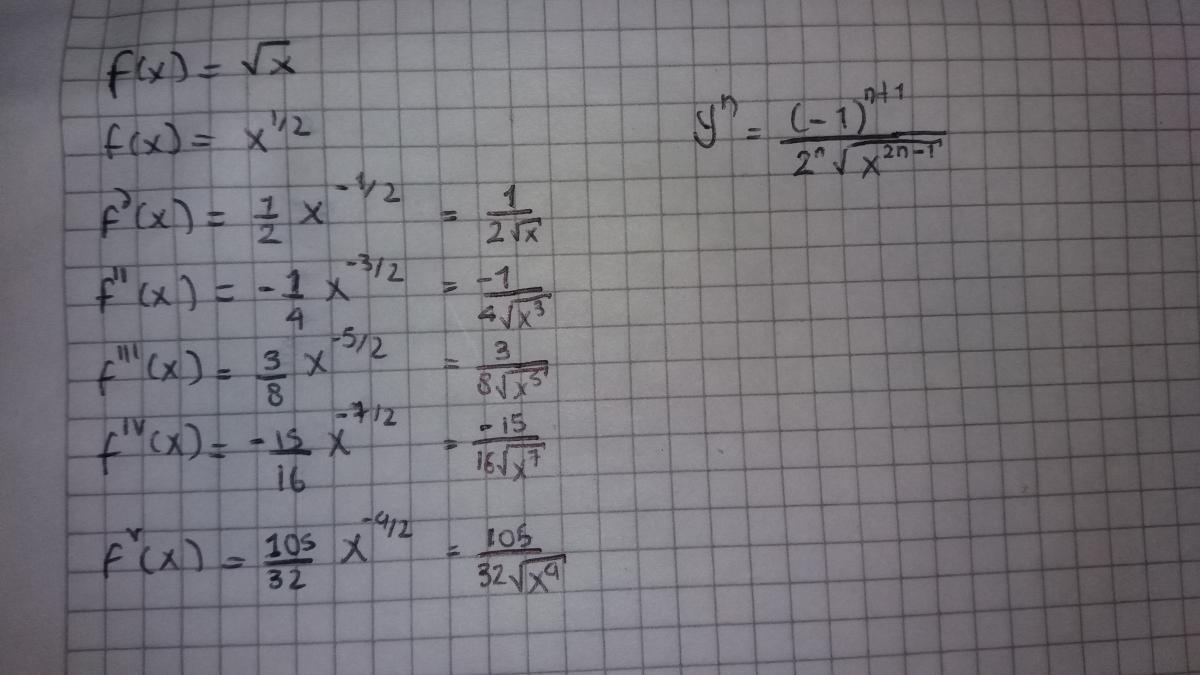 f(x) = √x
f(x) = x^1/2
f'(x) = 1/2 x^-1/2 = 1/(2√x)
f''(x) = -1/4 x^-3/2 = -1/(4√x^3)
f'''(x) = 3/8 x^-5/2 = 3/(8√x^5)
f^IV(x) = -15/16 x^-7/2 = -15/(16√x^7)
f^V(x) = 105/32 x^-9/2 = 105/(32√x^9)
y^n = (-1)^n+1/(2^n √x^2n-1)